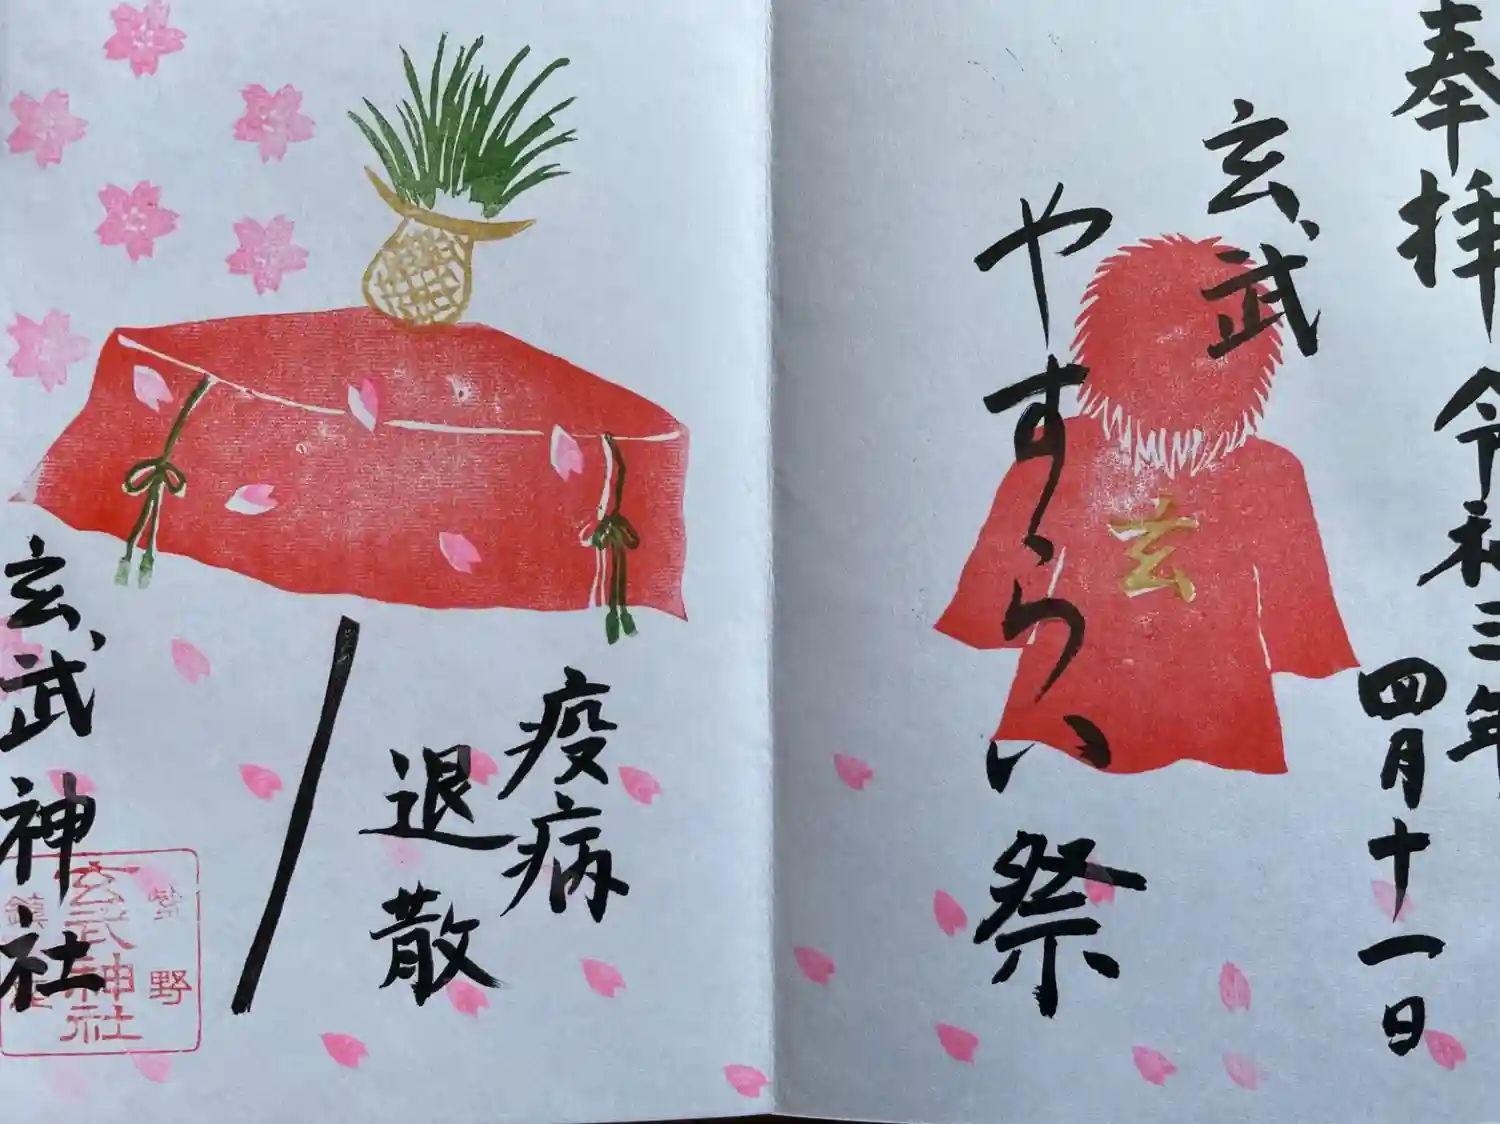 奉拝 令和三年
四月十一日
玄武
やすらい祭
玄
疫病
退散
玄武神社
紫野
玄武神社
鎮座